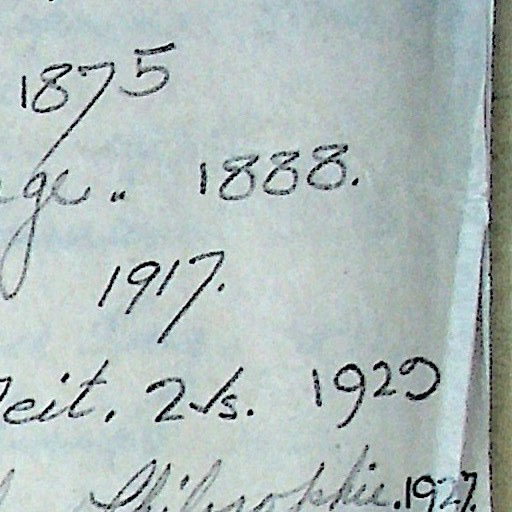 1875
ge„ 1888.
1917.
Zeit. 2 Vs. 1929
Philosophie. 1927.